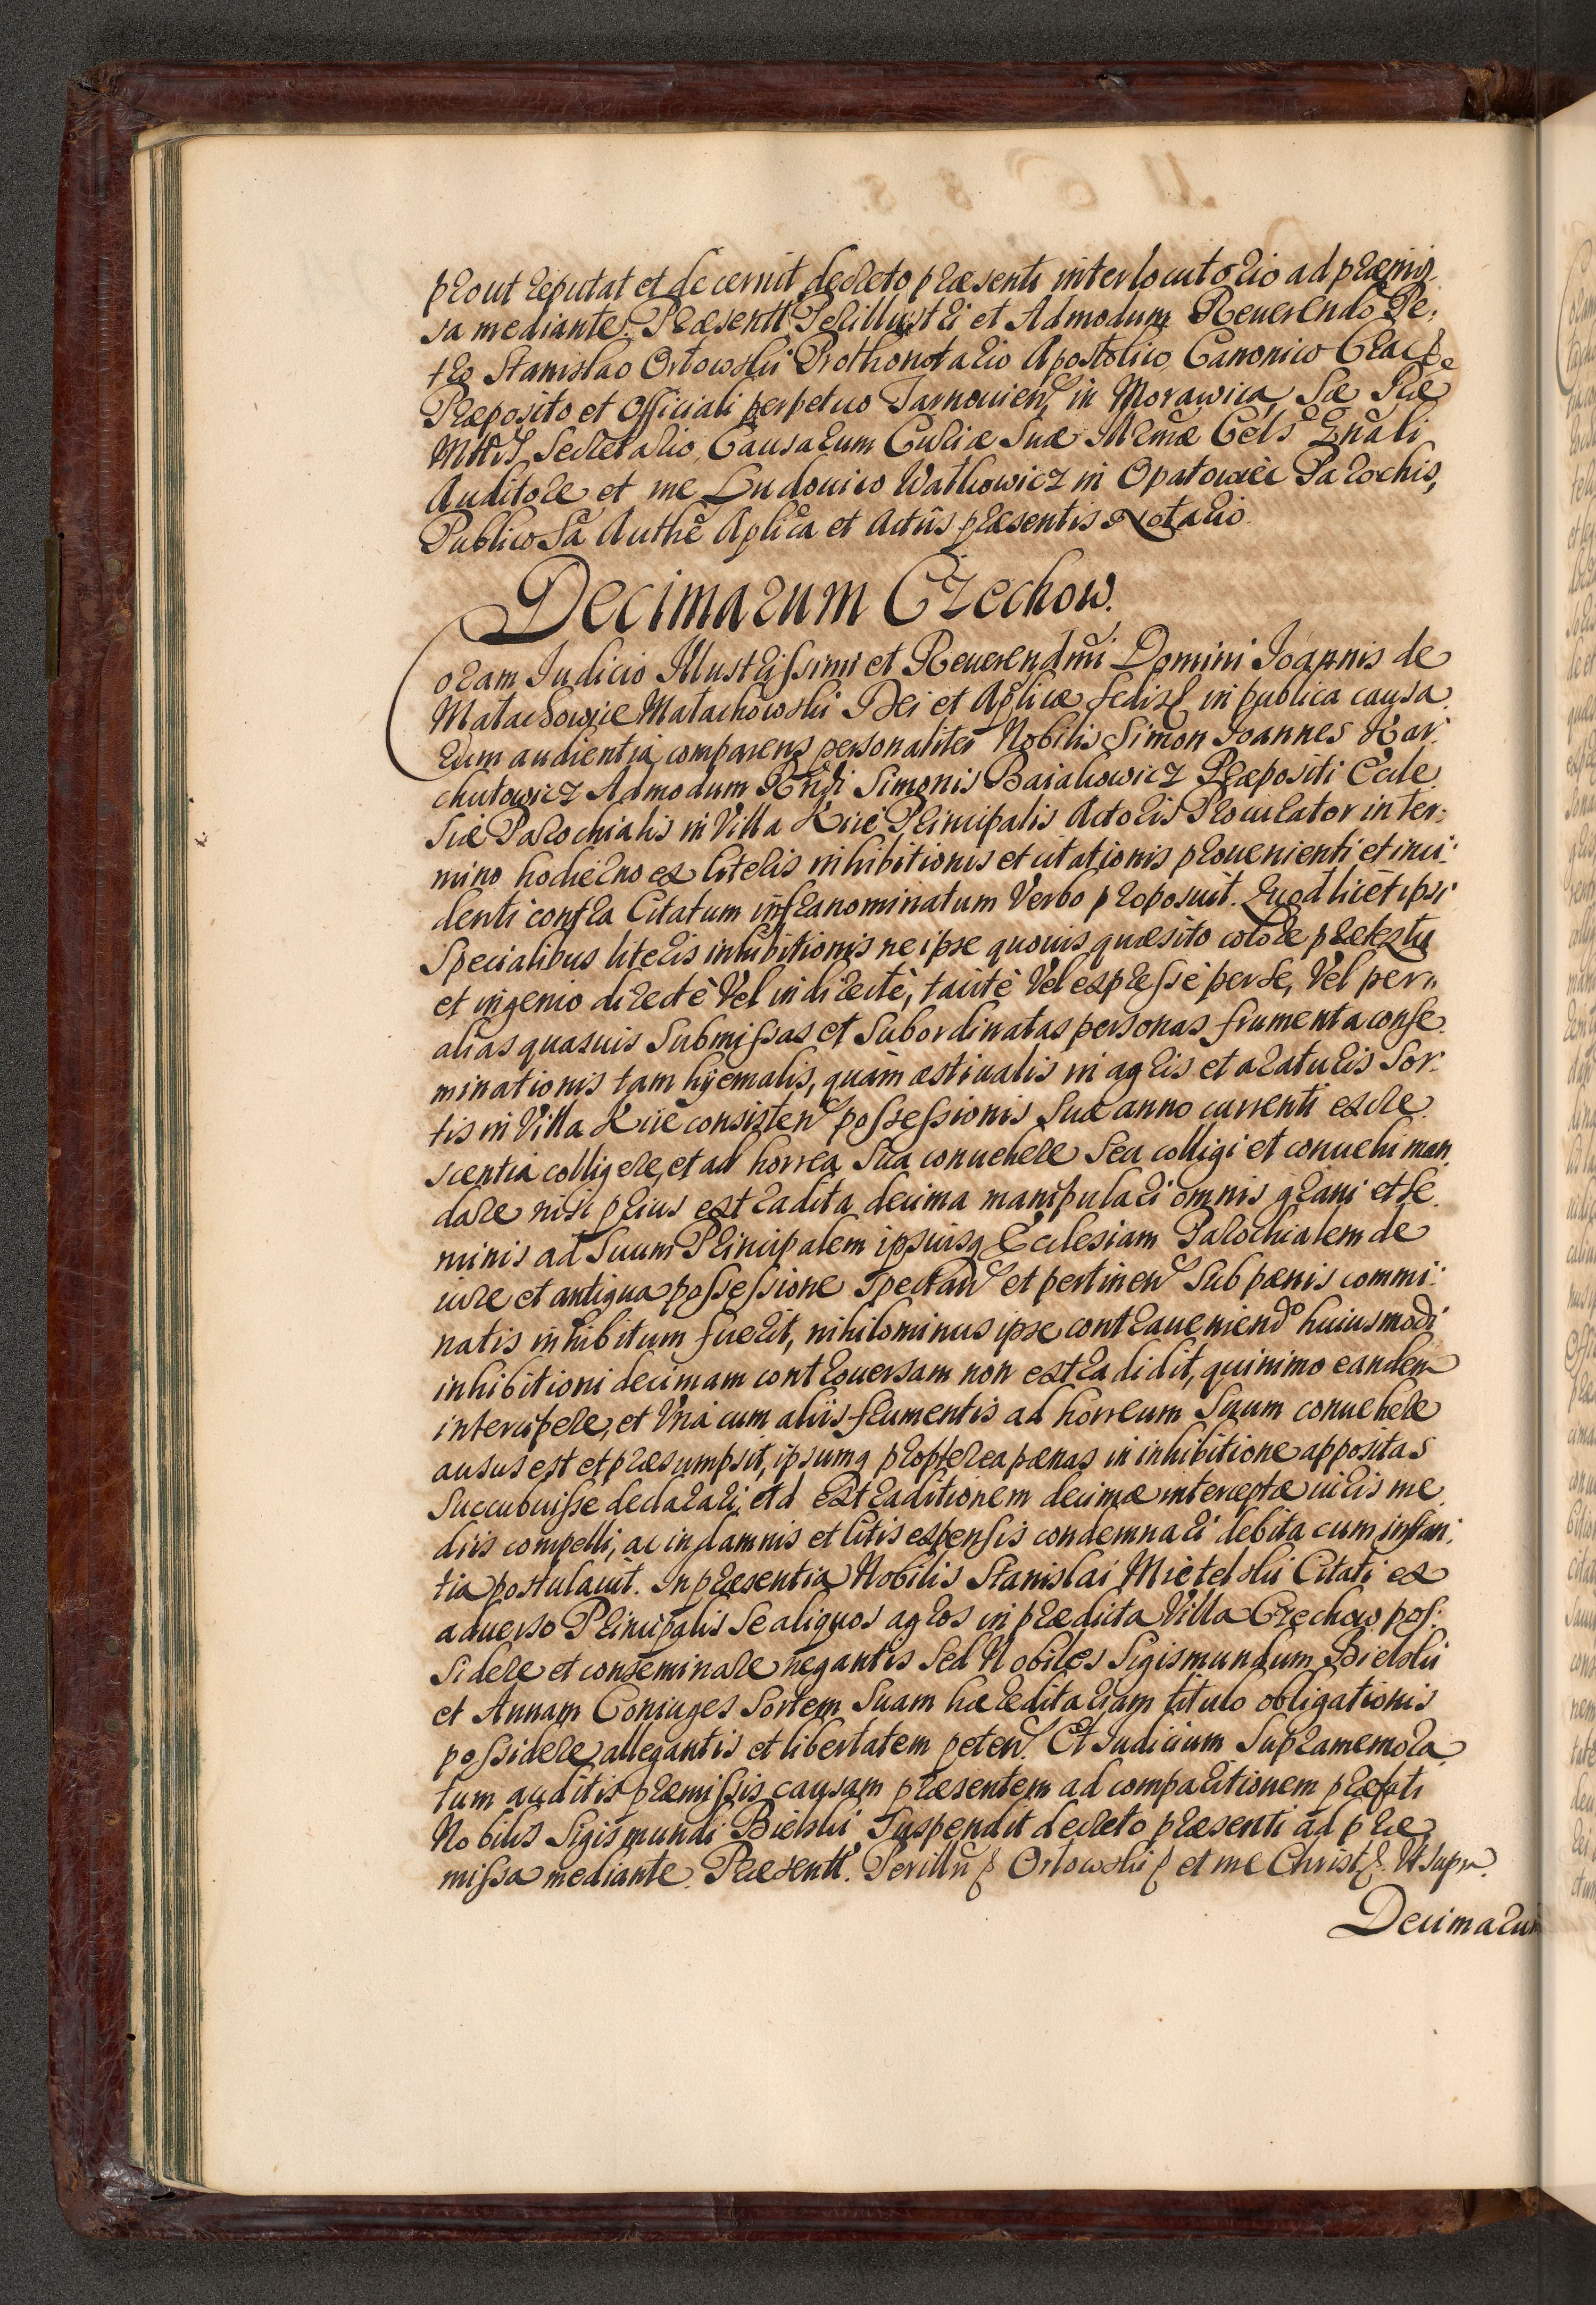 prout reputat et decernit decreto præsenti interlocutorio ad præmis,
sa mediante. Præsentt Perillustri et Admodum Reuerendo Pe,
tro Stanislao Orłowski Prothonotario Apostolico, Canonico Crac
Præposito et Officiali perpetuo Tarnouien in Morawica, Sæ Ræ
Mttis Secretario, Causarum Curiæ Suæ Illmæ Cels Gnali
Auditore et me Ludouico Wałkowicz in Opatowiec Parochis,
Publico Sa Authe Aplica et Actus præsentis Notario.
Decimarum Czechow.
Coram Judicio Illustrissimi et Reuerendmi Domini Joannis de
Małachowice Małachowski Dei et Aplicæ sedis in publica causa
rum audientia comparens personaliter Nobilis Simon Joannes Kar:
chutowicz Admodum Rndi Simonis Baiakowicz Præpositi Eccle
siæ Parochialis in Villa Kiie Principalis Actoris Procurator in ter:
mino hodierno ex literis inhibitionis et citationis prouenienti et inci:
denti contra Citatum infranominatum Verbo proposuit. Quod licet ipsi
Specialibus literis inhibitionis ne ipse quouis quæsito colore prætextu
et ingenio directè Vel indirectè, tacitè Vel expressè per se, Vel per
alias quasuis Submissas et Subordinatas personas frumenta conse
minationis tam hyemalis, quàm æstiualis in agris et araturis Sor:
tis in Villa Kiie consisten possessionis Suæ anno currenti excre
scentia colligere, et ad horrea Sua conuehere Seu colligi et conuehi man
dare nisi prius extradita decima manipulari omnis grani et se
minis ad Suum Principalem ipsiusq Ecclesiam Parochialem de
iure et antiqua possessione Spectan et pertinen Sub pænis commi:
natis inhibitum fuerit, nihilominus ipse contraueniendo huiusmodi
inhibitioni decimam controuersam non extradidit, quinimo eandem
intercipere, et Vnà cum aliis frumentis ad horreum Suum conuehere
ausus est et præsumpsit, ipsumq propterea pænas in inhibitione appositas
Succubuisse declarari, et ad Extraditionem decimæ interceptæ iuris me
diis compelli, ac in damnis et litis expensis condemnari debita cum instan:
tia postulauit. In præsentia Nobilis Stanislai Mietelski Citati ex
aduerso Principalis Se aliquos agros in prædicta Villa Czechow pos:
sidere et conseminare negantis Sed Nobiles Sigismundum Bielski
et Annam Coniuges Sortem Suam hæreditariam titulo obligationis
possidere allegantis et libertatem peten. Et Judicium Supramemora
tum auditis præmissis causam præsentem ad comparitionem præfati
Nobilis Sigismundi Bielski Suspendit decreto præsenti ad præ
missa mediante. Præsentt. Perillri Orłowski et me Christ. Vt Supra.
Decimarum